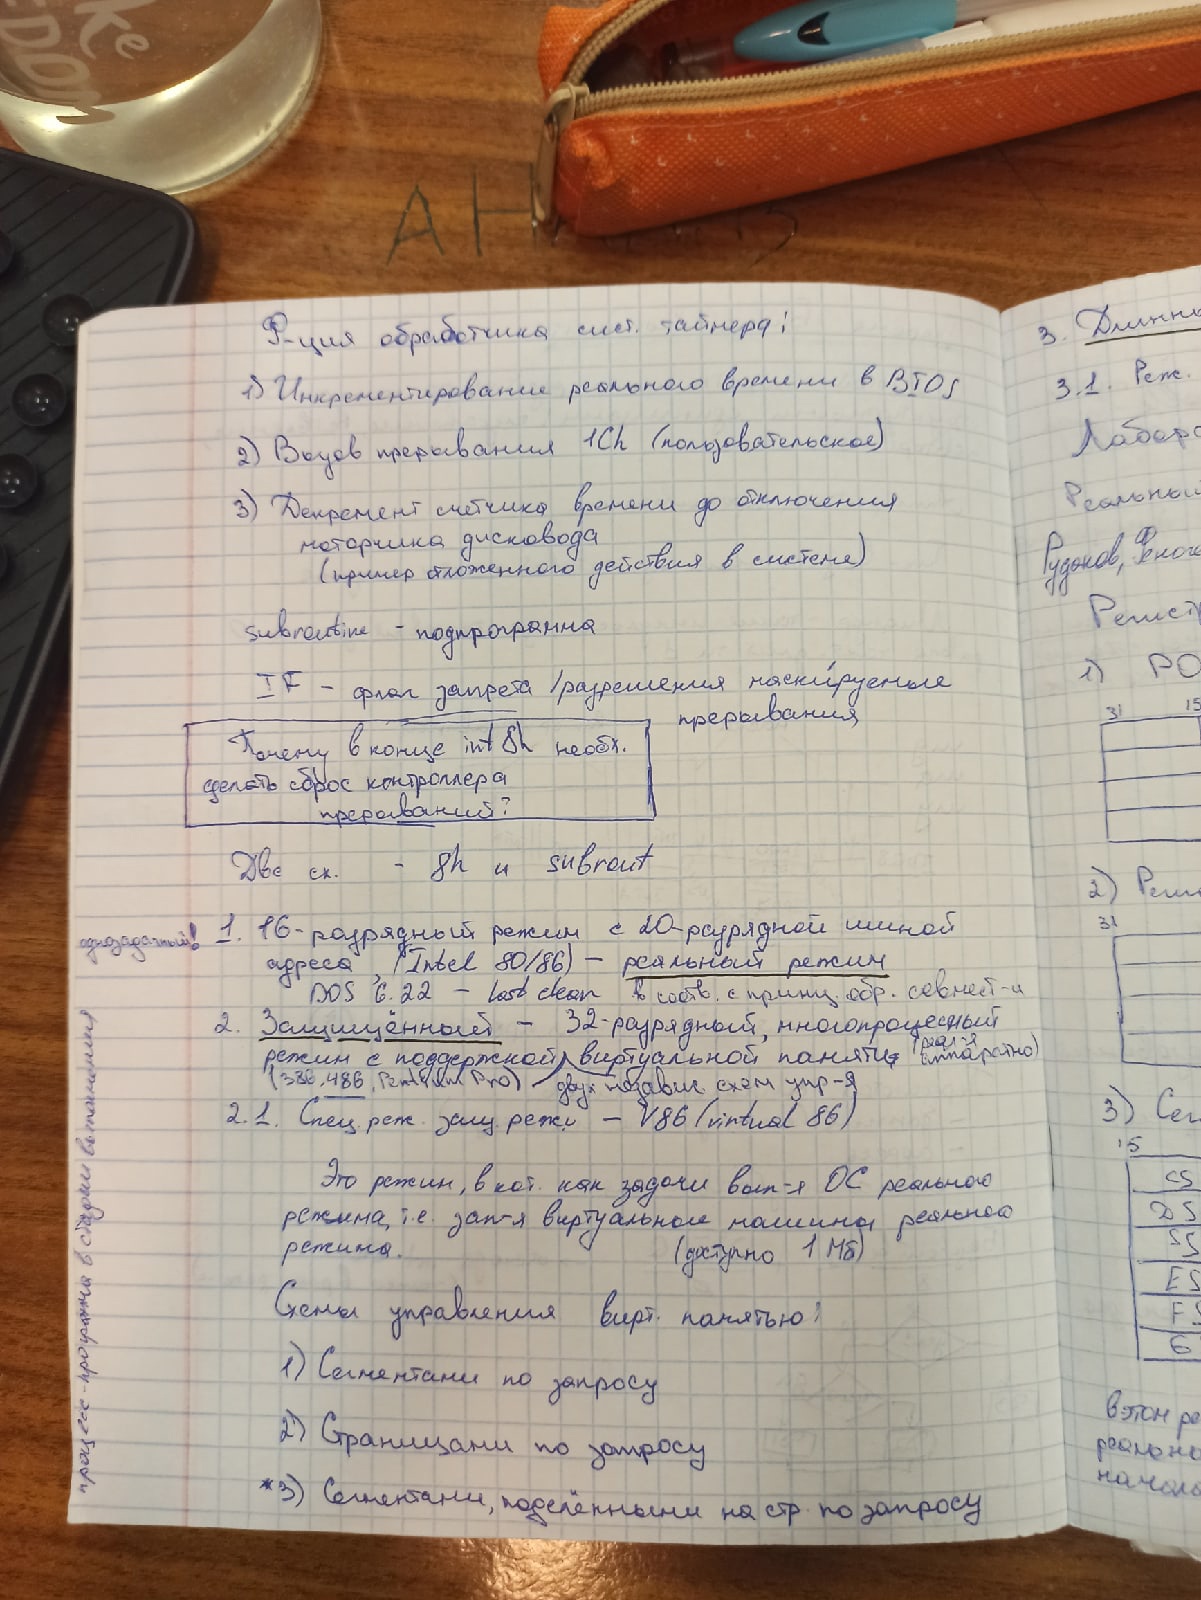 Ф-ция обработчика сист. таймера:
1) Инкрементирование реального времени в BIOS
2) Вызов прерывания 1Ch (пользовательское)
3) Декремент счётчика времени до отключения
моторчика дисковода
(пример отложенного действия в системе)
subroutine - подпрограмма
IF - флаг запрета/разрешения маскируемые
прерывания
Почему в конце int 8h необх.
сделать сброс контроллера
прерываний?
Две ск. - 8h и subrout
однозадачный!
1. 16-разрядный режим с 20-разрядной шиной
адреса, (Intel 80/86) - реальный режим
DOS 6.22 - last clean в соотв. с принц. обр. совмест-и
2. Защищённый - 32-разрядный, многопроцесный
режим с поддержкой виртуальной памяти (аппаратно)
(386, 486, Pentium Pro) двух независ схем упр-я
2.1. Спец. реж. защ. режи - V86 (virtual 86)
Это режим, в кот. как задачи вып-я ОС реального
режима, т.е. зап-я виртуальной машины реального
режима. (доступно 1 Мб)
Схемы управления вирт. памятью:
1) Сегментами по запросу
2) Страницами по запросу
*3) Сегментами, поделёнными на стр. по запросу
процесс - программа в стадии выполнения
3.
3.1. Реж.
1) РО
31 15
2)
31
3)
15
CS
DS
SS
ES
FS
G
в этом ре
реально
началь